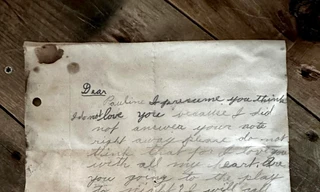 Dear
Pauline I presume you think
I do not love you because I did
not answer your note
right away please do not
think that I
with all my heart. Are
you going to the play